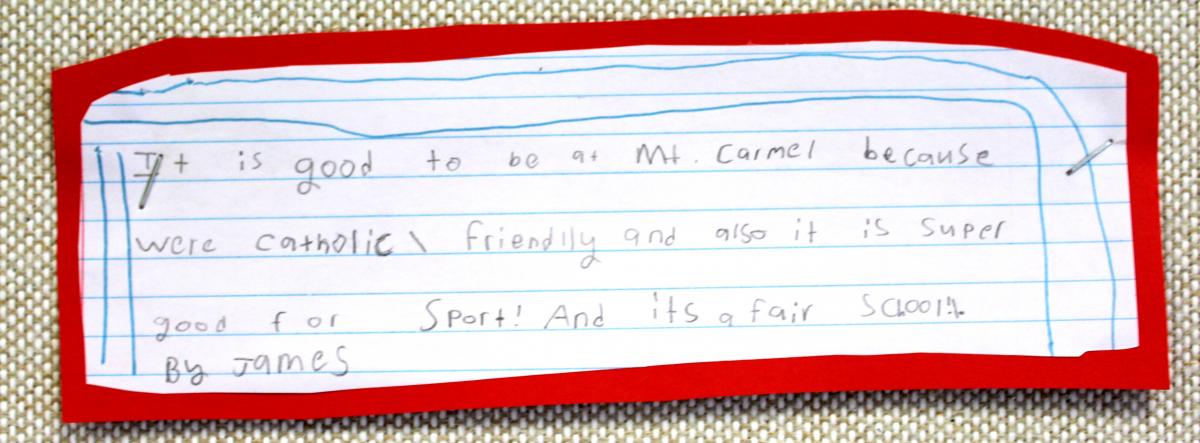 It is good to be at Mt. Carmel because
were catholic \ friendlly and also it is super
good for Sport! And its a fair School!.
By James